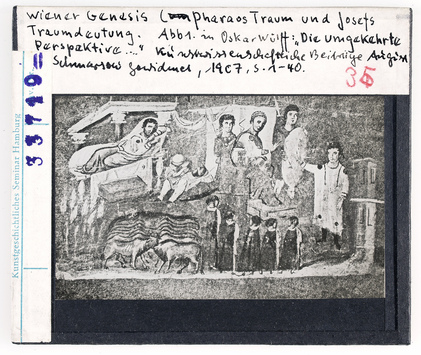 Wiener Genesis Pharaos Traum und Josefs
Traumdeutung. Abb1. in Oskar Wulff: „Die umgekehrte
Perspektive...." Kunstwissenschaftliche Beiträge August
Schmarsow gewidmet, 1907, S. 1-40.
33719
Kunstgeschichtliches Seminar Hamburg